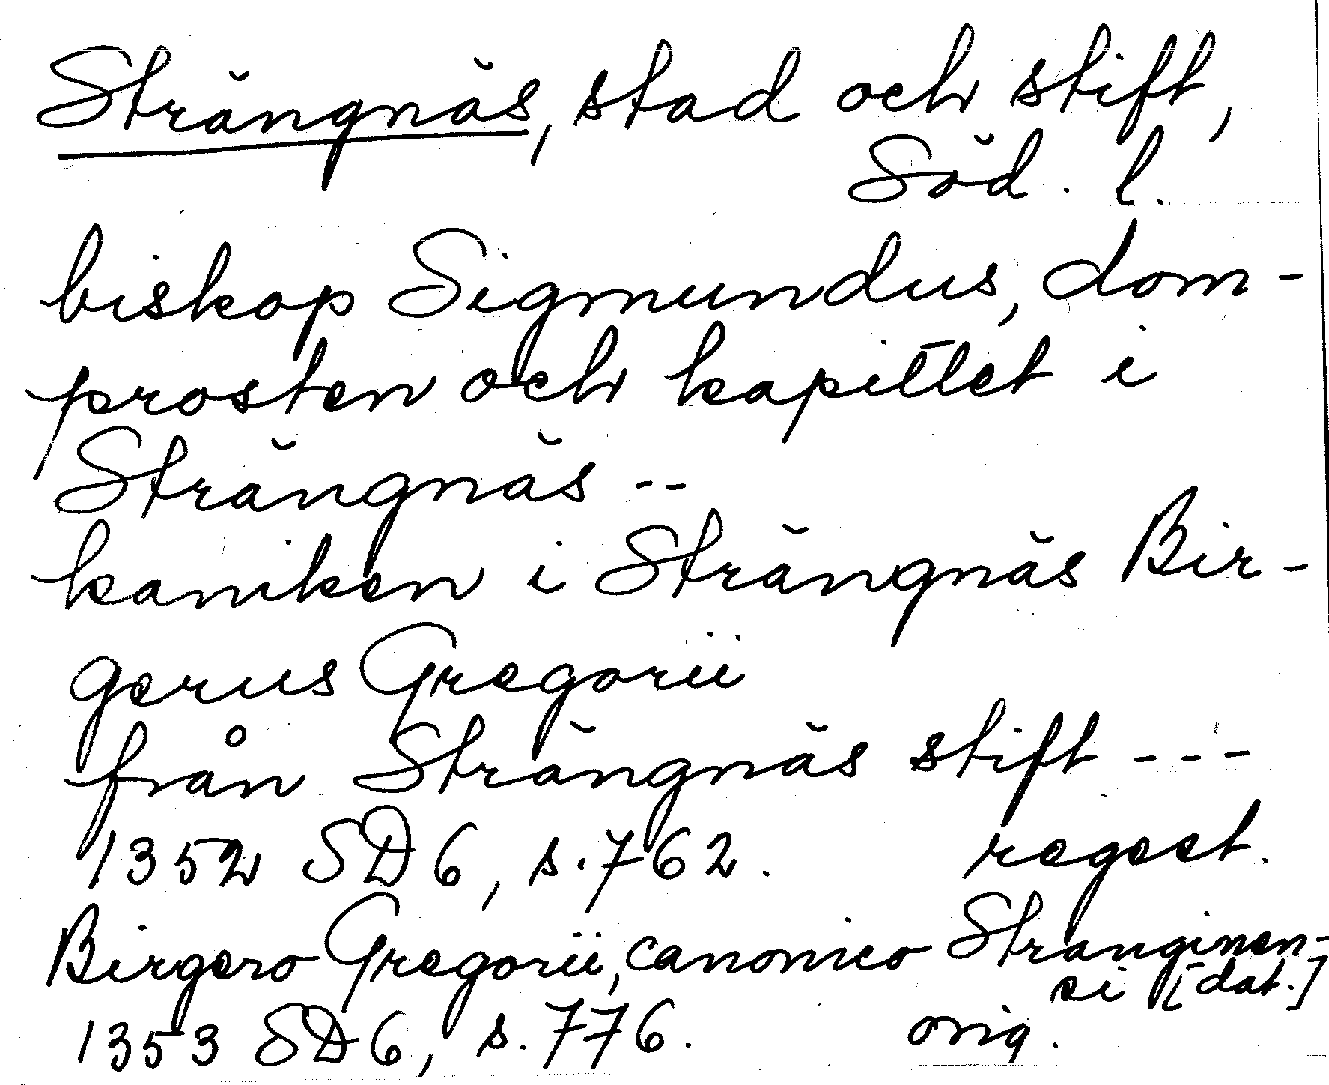 Strängnäs, stad och stift,
Söd. l.
biskop Sigmundus, dom-
prosten och kapitlet i
Strängnäs --
kaniken i Strängnäs Bir-
gerus Gregorii
från Strängnäs stift ---
1352 SD6, s.762. regest.
Birgero Gregorii, canonico Stranginen-
si [dat.]
1353 SD6, s.776. orig.